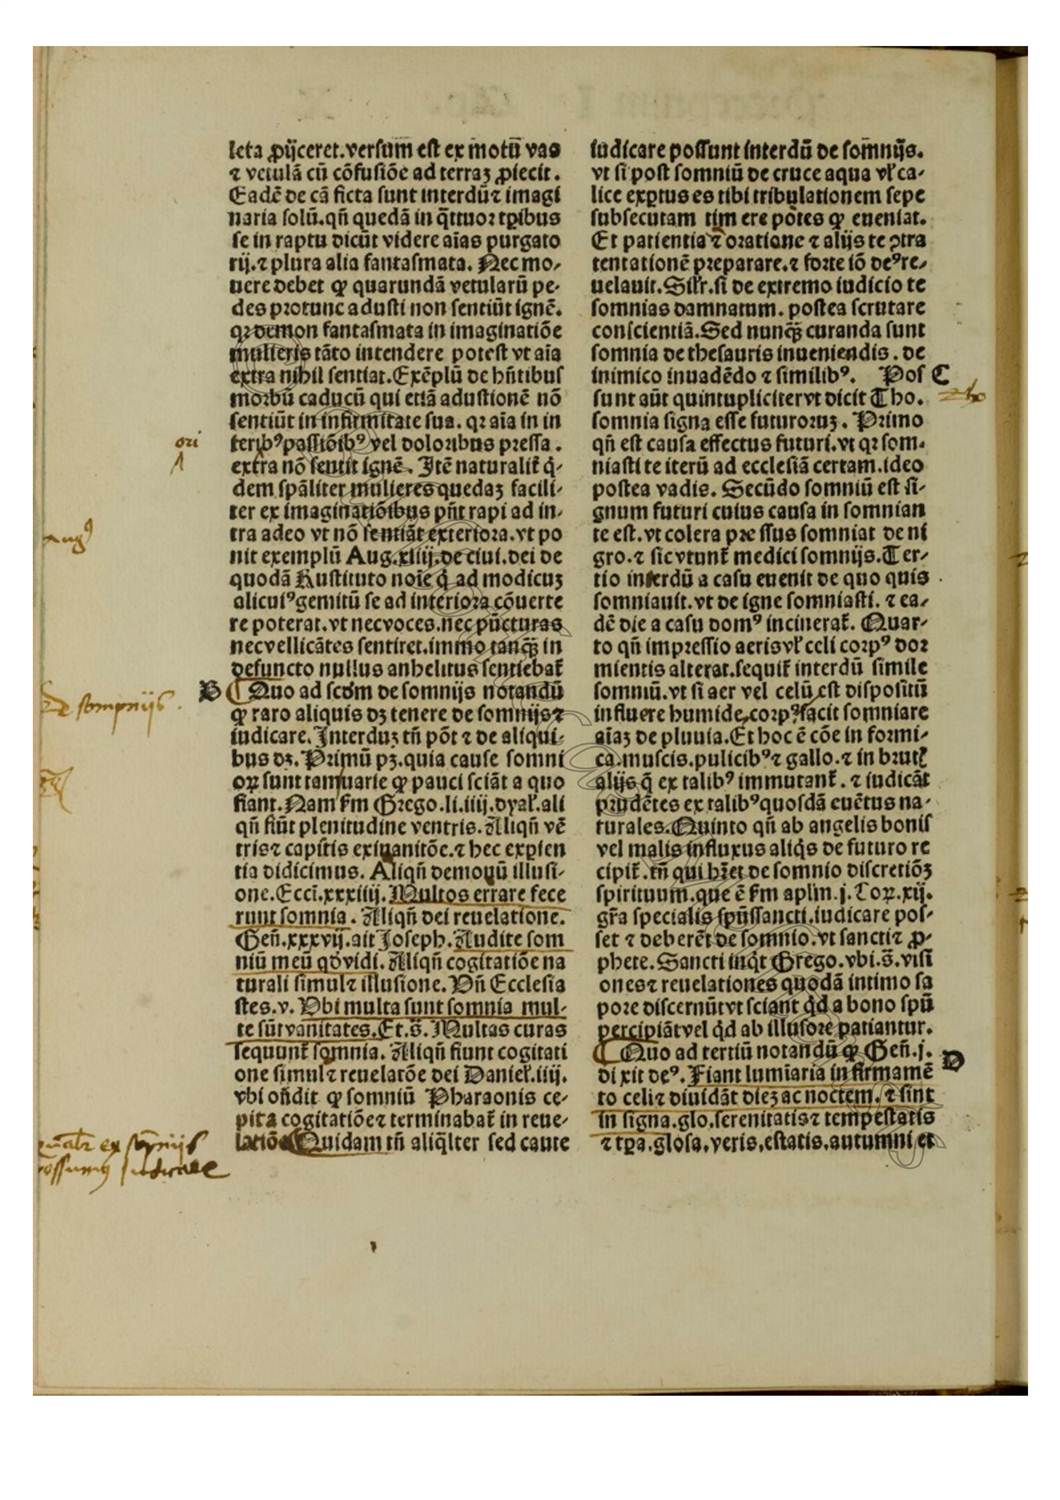 leta ꝓijceret. versum est ex motū vas
⁊ vetulā cū cōfusiōe ad terraꝫ ꝓiecit.
Eadē de cā ficta sunt interdū⁊ imagi
naria solū. qn̄ quedā in q̄ttuor tꝑibus
se in raptu dicūt videre aīas purgato
rij. ⁊ plura alia fantasmata. Nec mo⸗
uere debet ꝙ quarundā vetularū pe⸗
des protunc adusti non sentiūt ignē.
qꝛ demon fantasmata in imaginatiōe
mulieris tāto intendere potest vt aīa
extra nihil sentiat. Exēplū de hn̄tibus
morbū caducū qui etiā adustionē nō
sentiūt in infirmitate sua. qꝛ aīa in in
teribꝰ passiōibꝰ vel doloribus pressa.
extra nō sentit ignē. Itē naturalit̄ q̇⸗
dem spāliter mulieres quedaꝫ facili⸗
ter ex imaginatiōibus pn̄t rapi ad in⸗
tra adeo vt nō sentiāt exteriora. vt po
nit exemplū Aug. xiiij. de ciui. dei de
quodā Rustituto noīe q̇ ad modicuꝫ
alicuiꝰ gemitū se ad interiora cōuerte
re poterat. vt nec voces. nec pūcturas
nec vellicātes sentiret. immo tanqꝫ̄ in
defuncto nullus anhelitus sentiebat̄
B ¶ Quo ad scd̄m de somnijs notandū
ꝙ raro aliquis dꝫ tenere de somnijs⁊
iudicare. Interduꝫ tn̄ pōt ⁊ de aliqui⸗
bus dꝫ. Primū pꝫ. quia cause somni
oꝝ sunt tam varie ꝙ pauci sciāt a quo
fiant. Nam ẜm Grego. li. iiij. dyal̄. ali
qn̄ fiūt plenitudine ventris. Aliqn̄ vē
tris⁊ capitis exinanitōe. ⁊ hec exꝑien
tia didicimus. Aliqn̄ demonū illusi⸗
one. Eccī. xxxiiij. Multos errare fece
runt somnia. Aliqn̄ dei reuelatione.
Gen̄. xxxvij. ait Joseph. Audite som
niū meū qd̄ vidi. Aliqn̄ cogitatiōe na
turali simul⁊ illusione. Vn̄ Ecclesia
stes. v. Vbi multa sunt somnia mul⸗
te sūt vanitates. Et. s̄. Multas curas
sequunt̄ somnia. Aliqn̄ fiunt cogitati
one simul⁊ reuelatōe dei Daniel̄. iiij.
vbi on̄dit ꝙ somniū Pharaonis ce⸗
pita cogitatiōe⁊ terminabat̄ in reue⸗
latiōe Quidam tn̄ aliq̄lter sed caute
iudicare possunt interdū de somnijs.
vt si post somniū de cruce aqua vl̄ ca⸗
lice exꝑtus es tibi tribulationem sepe
subsecutam timere pōtes ꝙ eueniat.
Et patientia⁊ oratione ⁊ alijs te ꝯtra
tentationē preparare. ⁊ forte iō deꝰ re⸗
uelauit. Sil̄r. si de extremo iudicio te
somnias damnatum. postea scrutare
conscientiā. Sed nunqꝫ̄ curanda sunt
somnia de thesauris inueniendis. de
inimico inuadēdo ⁊ similibꝰ. Pos C
sunt aūt quintupliciter vt dicit Tho.
somnia signa esse futuroruꝫ. Primo
qn̄ est causa effectus futuri. vt qꝛ som⸗
niasti te iterū ad ecclesiā certam. ideo
postea vadis. Secūdo somniū est si⸗
gnum futuri cuius causa in somnian
te est. vt colera pressus somniat de ni
gro. ⁊ sic vtunt̄ medici somnijs. Ter⸗
tio interdū a casu euenit de quo quis
somniauit. vt de igne somniasti. ⁊ ea⸗
dē die a casu domꝰ incinerat̄. Quar⸗
to qn̄ impressio aeris vl̄ celi corpꝰ dor
mientis alterat. sequit̄ interdū simile
somniū. vt si aer vel celū est dispositū
influere humide. corpꝰ facit somniare
aīaꝫ de pluuia. Et hoc ē cōe in formi⸗
ca. muscis. pulicibꝰ⁊ gallo. ⁊ in brut̄
alijs q̄ ex talibꝰ immutant̄. ⁊ iudicāt
prudētes ex talibꝰ quosdā euētus na⸗
turales. Quinto qn̄ ab angelis bonis
vel malis influxus aliq̇s de futuro re
cipit̄. tn̄ qui hꝫet de somnio discretiōꝫ
spirituum. que ē ẜm apl̄m. j. Coꝝ. xij.
gr̄a specialis spūssancti. iudicare pos⸗
set ⁊ deberēt de somnio. vt sancti⁊ ꝓ⸗
phete. Sancti inq̇t Grego. vbi. s̄. visi
ones⁊ reuelationes quodā intimo sa
pore discernūt vt sciant q̇d a bono spū
percipiāt vel q̇d ab illusore patiantur.
¶ Quo ad tertiū notandū ꝙ Gen̄. j. D
dixit deꝰ. Fiant lumīaria in firmamē
to celi⁊ diuidāt dieꝫ ac noctem. ⁊ sint
in signa. glo. serenitatis⁊ tempestatis
⁊ tꝑa. glosa. veris. estatis. autumni et
ori
Augꝰ
De sompnijs.
ex sōpnijs
possumꝰ iudicare
tho